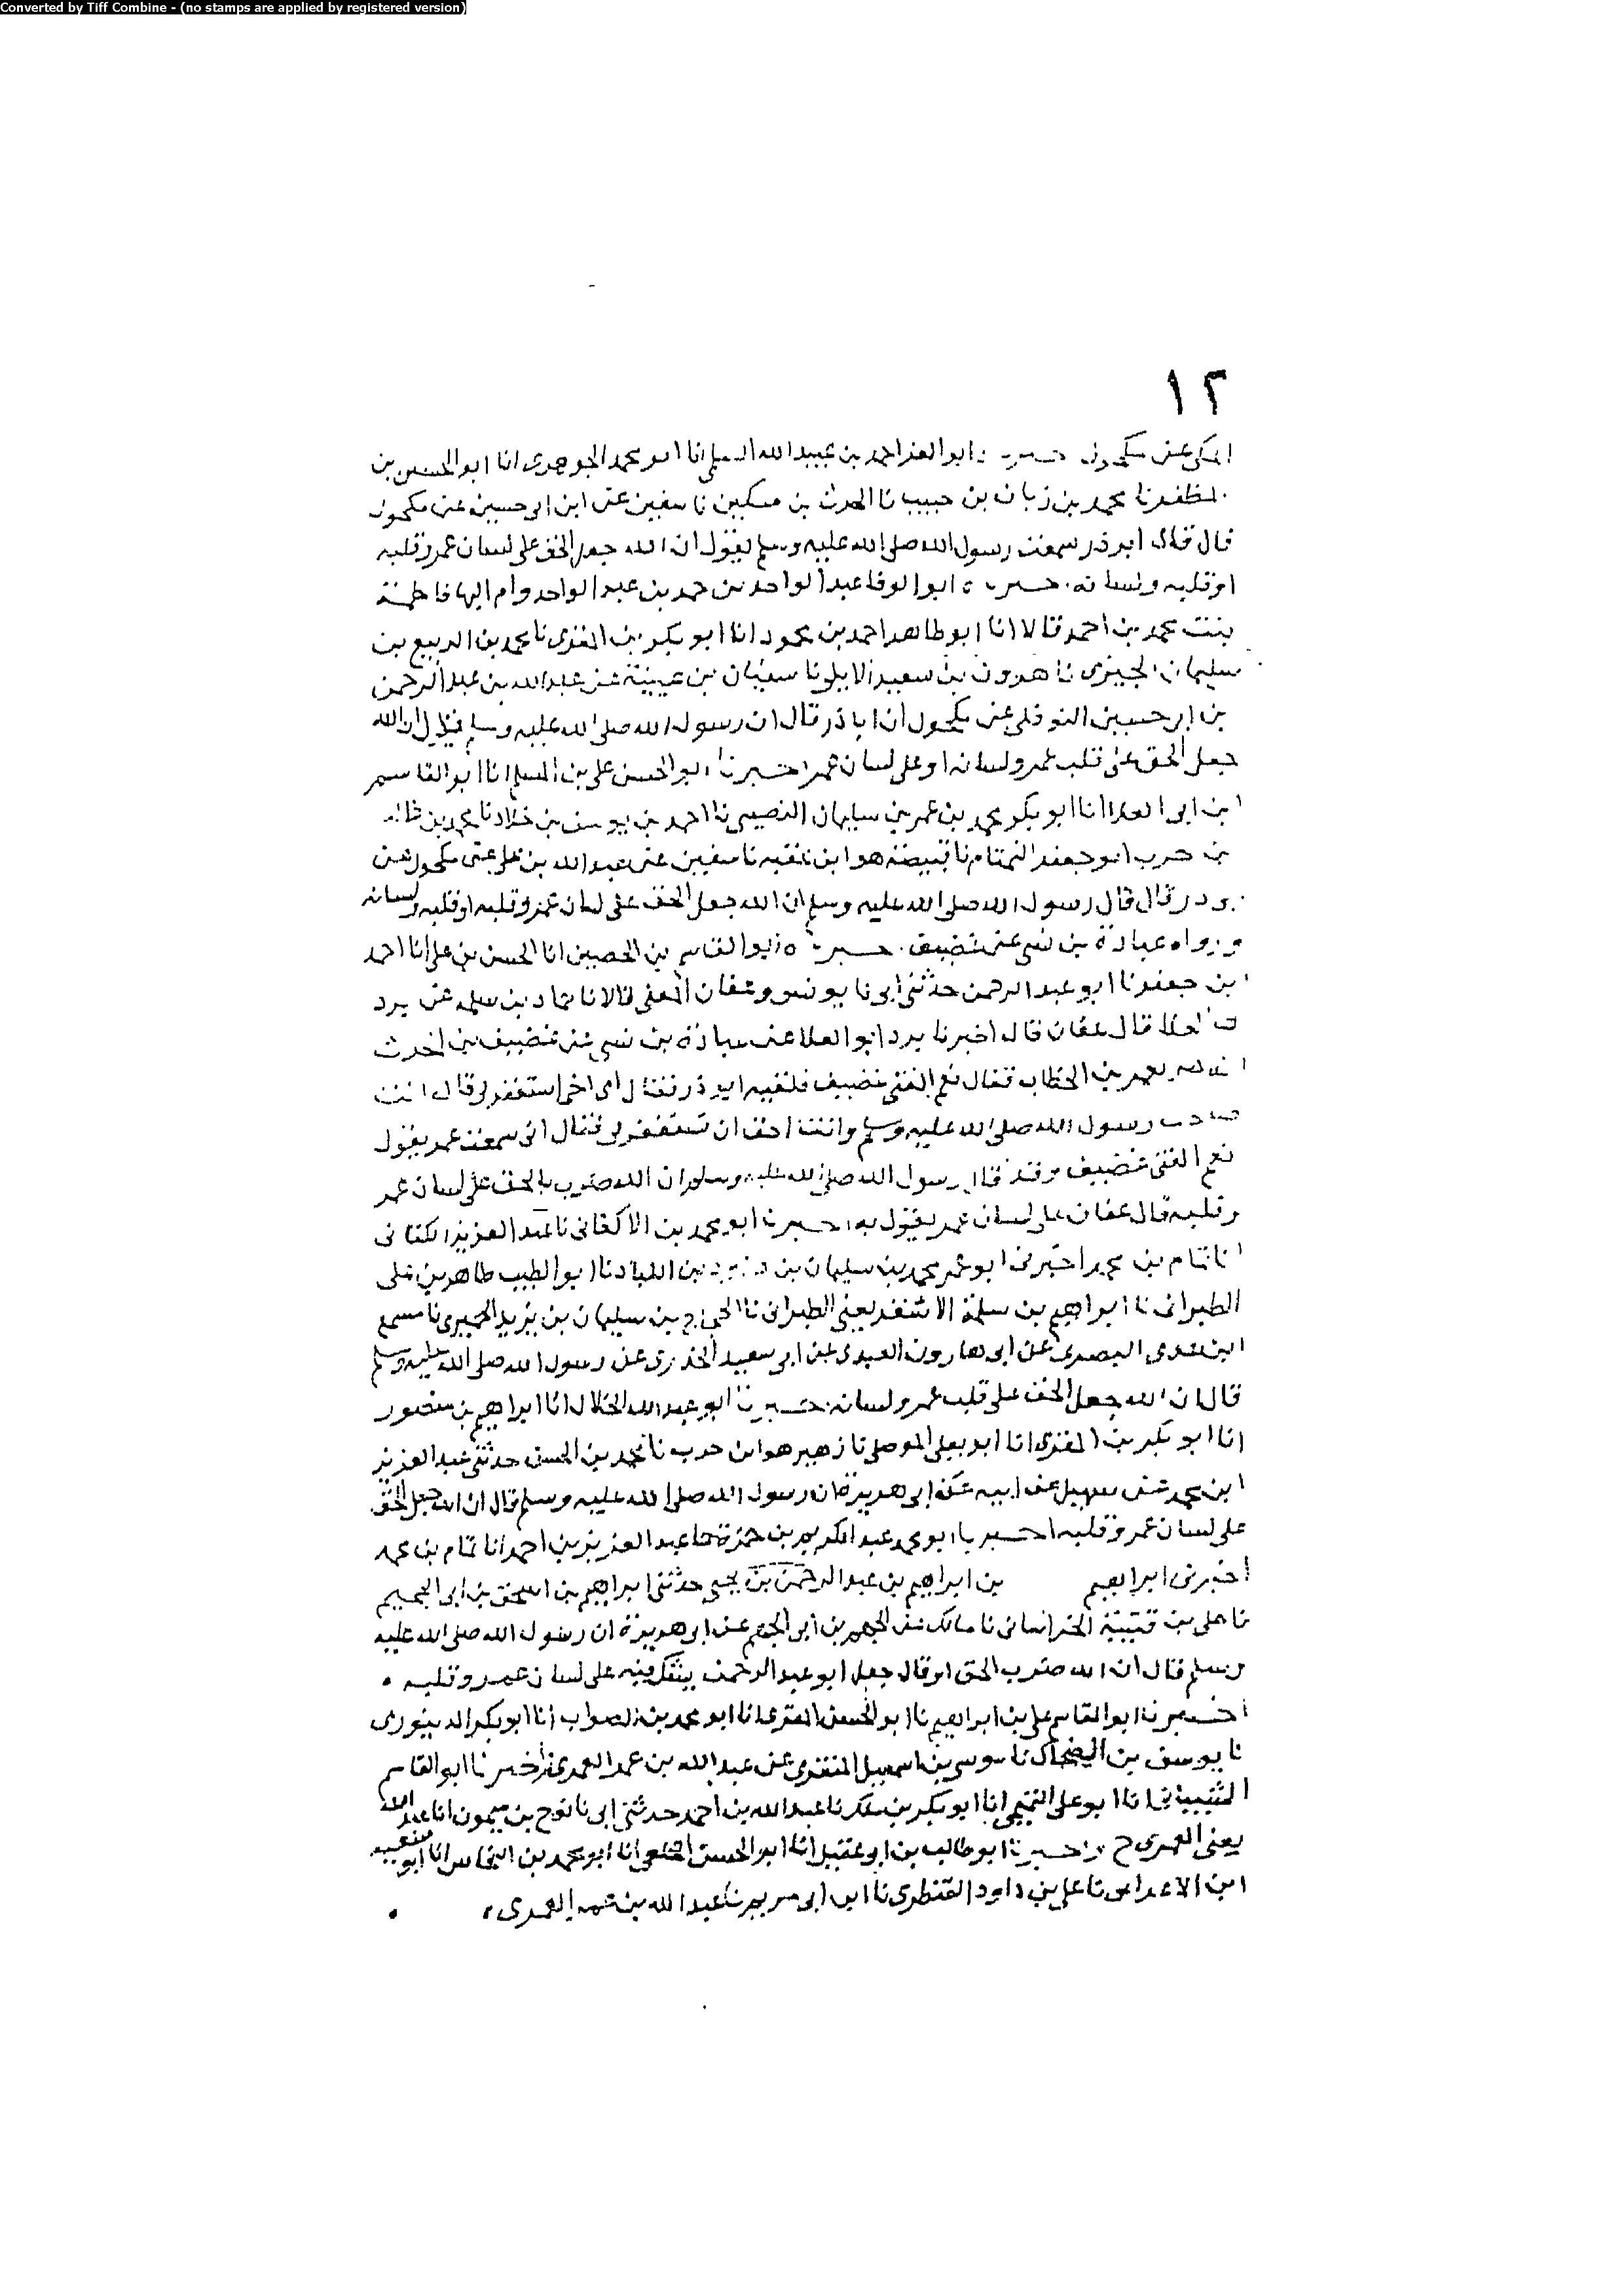 Converted by Tiff Combine - (no stamps are applied by registered version)
١٢
المكي عن مكحول ابو العز احمد بن عبيد الله السلمي انا ابو محمد الجوهري انا ابو الحسين بن
المظفر نا محمد بن زبان بن حبيب نا الحرث بن مسكين نا سفين عن ابن ابي حسين عن مكحول
قال قال ابو ذر سمعت رسول الله صلى الله عليه وسلم يقول ان الله جعل الحق على لسان عمر وقلبه
او قلبه ولسانه ابو الوفا عبد الواحد بن حمد بن عبد الواحد وام البها فاطمة
بنت محمد بن احمد قالا انا ابو طاهر احمد بن محمود انا ابو بكر بن المقرى نا محمد بن الربيع بن
سليمان الجيزى نا هرون بن سعيد الايلى نا سفيان بن عيينة عن عبد الله بن عبد الرحمن
بن ابي حسين النوفلي عن مكحول ان ابا ذر قال ان رسول الله صلى الله عليه وسلم يقول ان الله
جعل الحق على قلب عمر ولسانه او على لسان عمر اخبرنا ابو الحسن علي بن المسلم انا ابو القاسم
ابن ابي العلا انا ابو بكر محمد بن عمر بن سليمان النصيبي نا احمد بن يوسف بن خلاد نا محمد بن غالب
بن حرب ابو جعفر التمتام نا قبيصة هو ابن عقبه نا سفين عن عبد الله بن علي عن مكحول عن
ابو ذر قال قال رسول الله صلى الله عليه وسلم ان الله جعل الحق على لسان عمر وقلبه او قلبه ولسانه
ورواه عبادة بن نسي عن غضيف ابو القاسم بن الحصين انا الحسن بن علي انا احمد
ابن جعفر نا ابو عبد الرحمن حدثني ابي نا يونس وعفان المعنى قالا نا حماد بن سلمه عن برد
ابى العلا قال عفان قال اخبرنا برد ابو العلا عن عبادة بن نسي عن غضيف بن الحرث
انه مر بعمر بن الخطاب فقال نعم الفتى غضيف فلقيه ابو ذر فقال اى اخي استغفر لى قال انت
صاحب رسول الله صلى الله عليه وسلم وانت احق ان تستغفر لى فقال انى سمعت عمر يقول
نعم الفتى غضيف وقد قال رسول الله صلى الله عليه وسلم ان الله ضرب بالحق على لسان عمر
وقلبه قال عفان على لسان عمر يقول به اخبرنا ابو محمد بن الاكفانى نا عبد العزيز الكتانى
انا تمام بن محمد اخبرنى ابو عمر محمد بن سليمان بن داود بن اللباد نا ابو الطيب طاهر بن على
الطبرانى نا ابراهيم بن سلمة الاشقر يعنى الطبرانى نا الحجاج بن سليمان بن يزيد الحميرى نا مسمع
ابن عدى البصرى عن ابى هارون العبدى عن ابى سعيد الخدرى عن رسول الله صلى الله عليه وسلم
قال ان الله جعل الحق على قلب عمر ولسانه اخبرنا ابو عبد الله الخلال انا ابراهيم بن منصور
انا ابو بكر بن المقرى انا ابو يعلى الموصلى نا زهير هو ابن حرب نا محمد بن الحسن حدثنى عبد العزيز
ابن محمد عن سهيل عن ابيه عن ابى هريرة ان رسول الله صلى الله عليه وسلم قال ان الله جعل الحق
على لسان عمر وقلبه اخبرنا ابو محمد عبد الكريم بن حمزة نا عبد العزيز بن احمد انا تمام بن محمد
اخبرنى ابراهيم بن ابراهيم بن عبد الرحمن بن يحيى حدثنى ابراهيم بن اسحق بن ابى الجحيم
نا على بن قتيبة الخراسانى نا مالك عن الجهم بن ابى الجهم عن ابى هريرة ان رسول الله صلى الله عليه
وسلم قال ان الله ضرب الحق او قال جعل ابو عبد الرحمن يشك فيه على لسان عمر وقلبه
اخبرنا ابو القاسم على بن ابراهيم نا ابو الحسن المقرى انا ابو محمد بن الضراب انا ابو بكر الدينورى
نا يوسف بن الضحاك نا موسى بن اسمعيل المنقرى عن عبد الله بن عمر العمرى اخبرنا ابو القاسم
الشيبانى انا ابو على التميمى انا ابو بكر بن ملك نا عبد الله بن احمد حدثنى ابى نا نوح بن ميمون انا عبد الله
يعنى العمرى ح واخبرنا ابو طالب بن ابى عقيل انا ابو الحسن الخلعى انا ابو محمد بن النحاس انا ابو سعيد
ابن الاعرابى نا على بن داود القنطرى نا ابن ابى مريم نا عبد الله بن عمر العمرى